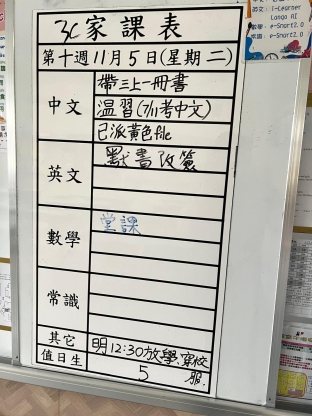 3C家課表
第十週11月5日(星期二)
中文
帶三上一冊書
温習(7/11考中文)
已派黃色file
英文
默書改簽
數學
堂課
常識
其它
明12:30放學,穿校服.
值日生
5
英文: i-Learner
Lango AI
數學: e-Smart2.0
常識: e-Smart2.0